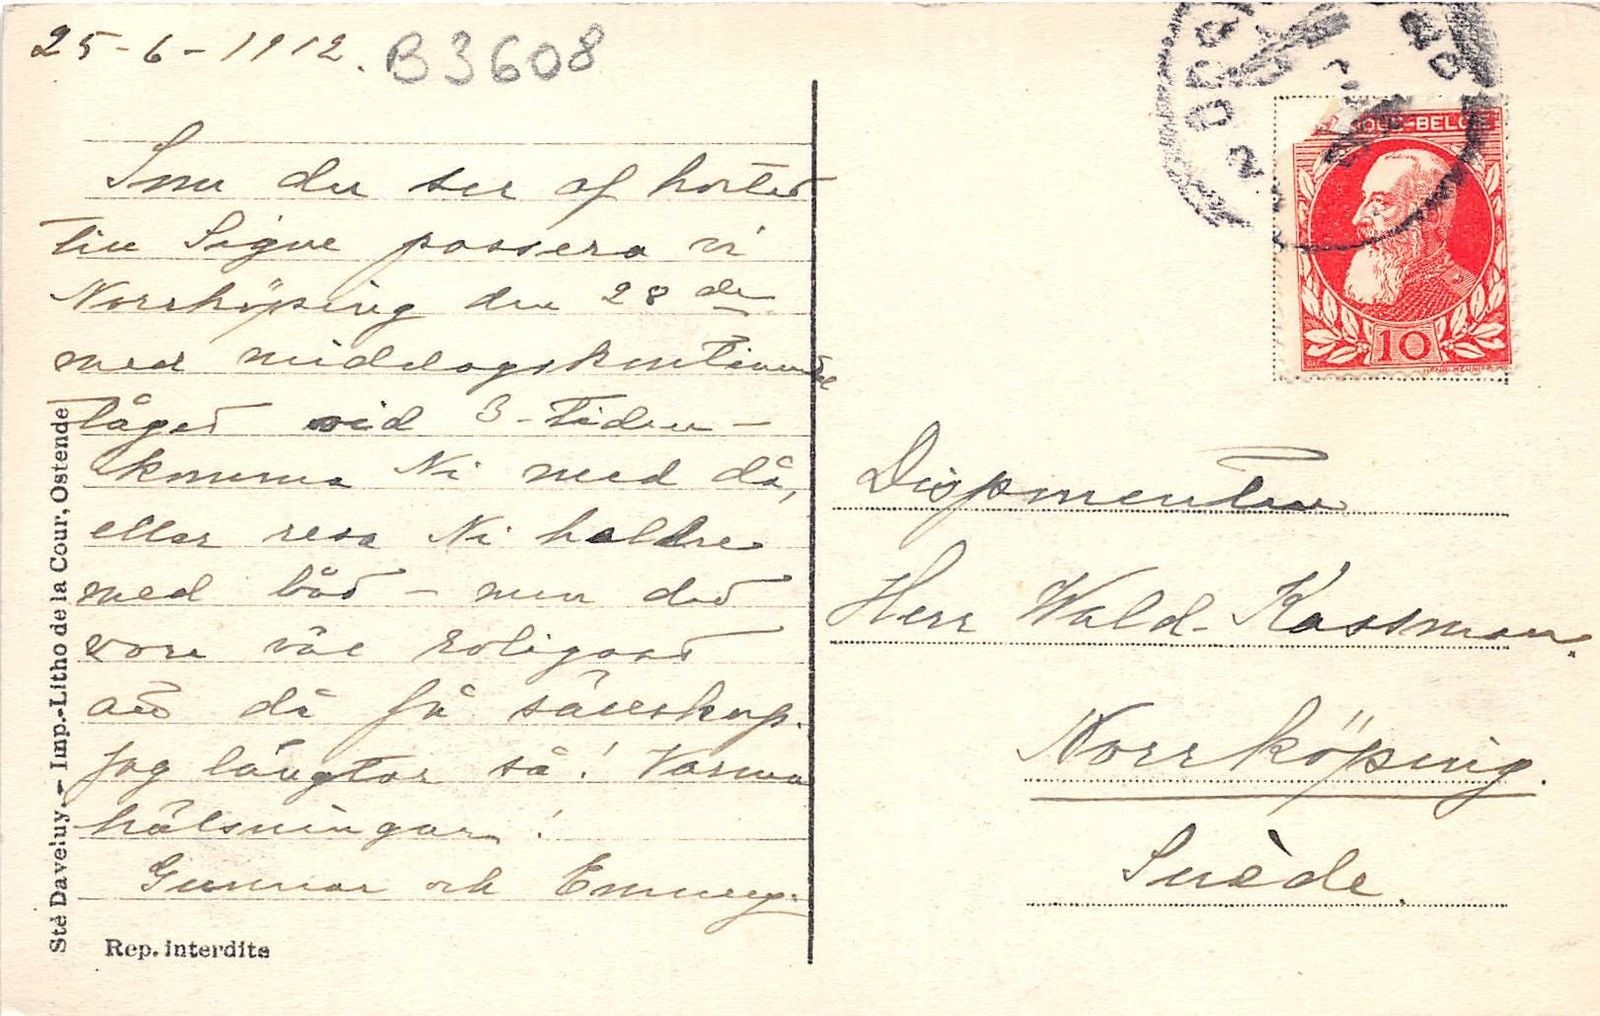 25-6-1912.
B3608
Som du ser af kortet
till Signe passera vi
Norrköping den 28 de
med middagskontinental
tåget vid 3-tiden -
komma Ni med då,
eller resa Ni heldre
med båt - men det
vore väl roligast
att då få sällskap.
Jag längtar så! Varma
hälsningar!
Gunnar och Emmy.
Rep. interdite
Sté Daveluy. - Imp.-Litho de la Cour, Ostende
BELG
10
Disponenten
Herr Wald. Kassman.
Norrköping.
Suède.